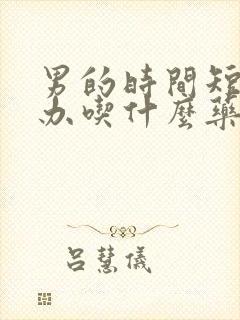 男的時間短
办喫什麼藥
呂慧儀